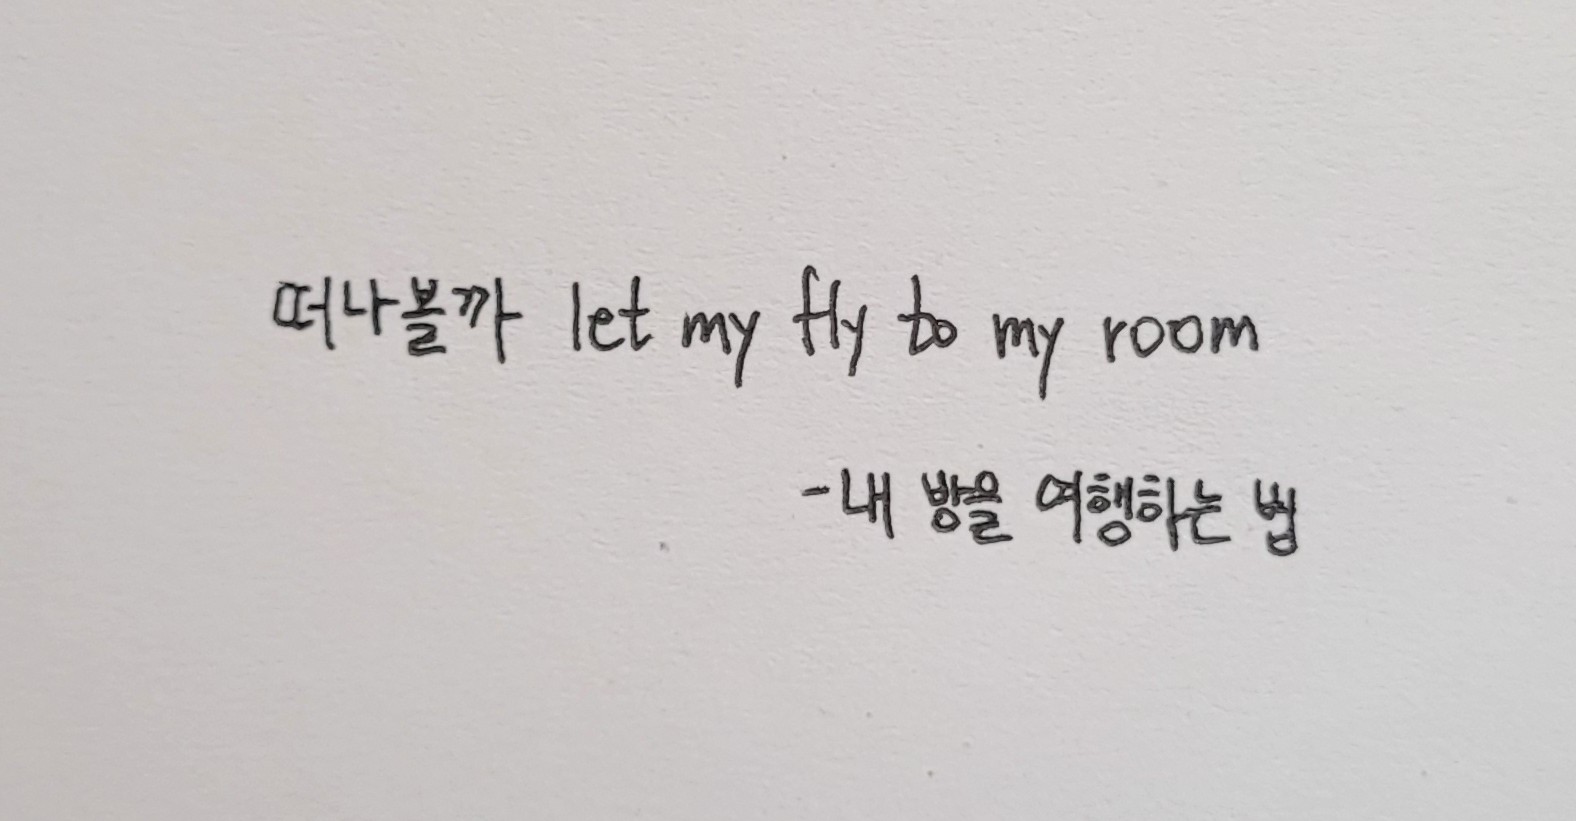 떠나볼까 let my fly to my room
-내 방을 여행하는 법